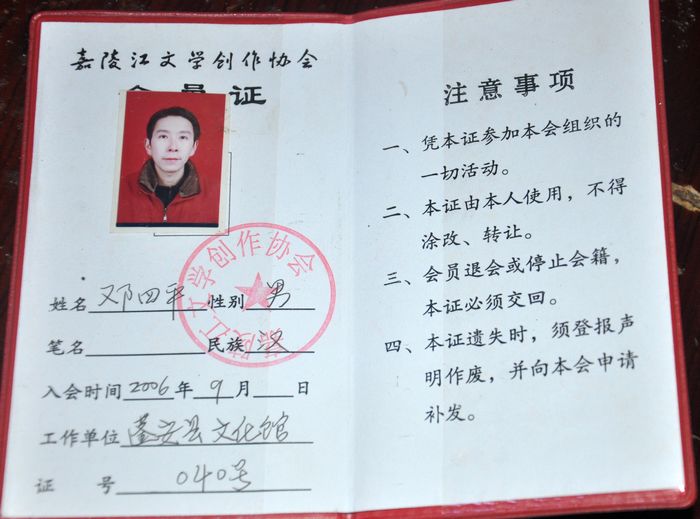 嘉陵江文学创作协会
会员证
嘉陵江文学创作协会
姓名 邓四平 性别 男
笔名 民族 汉
入会时间 2006 年 9 月 日
工作单位 蓬安县文化馆
证 号 040号
注意事项
一、凭本证参加本会组织的
一切活动。
二、本证由本人使用，不得
涂改、转让。
三、会员退会或停止会籍，
本证必须交回。
四、本证遗失时，须登报声
明作废，并向本会申请
补发。